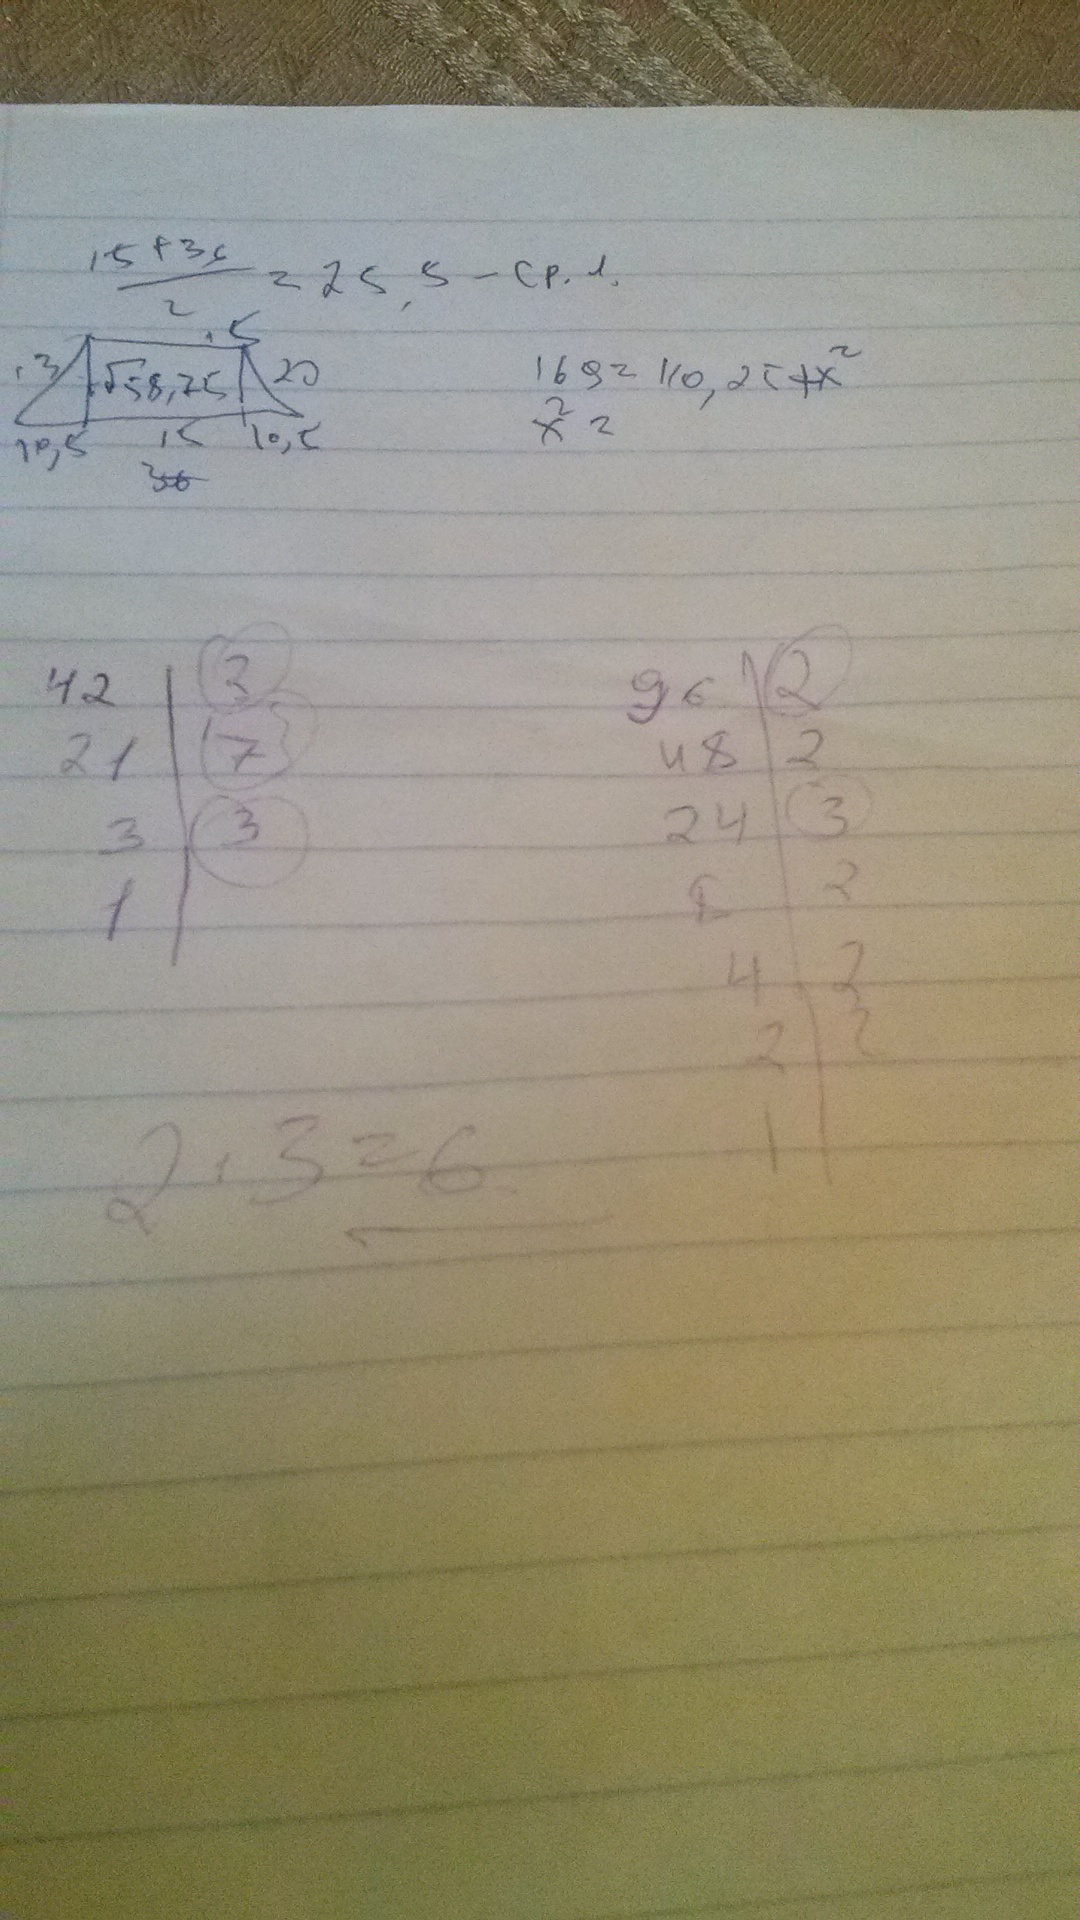 15+36
2
= 25,5 - ср. л.
15
13
√58,75
20
10,5
15
10,5
36
169 = 110,25 + x²
x² =
42 | 2
21 | 7
3 | 3
1 |
96 | 2
48 | 2
24 | 3
8 | 2
4 | 2
2 | 2
1 |
2 · 3 = 6